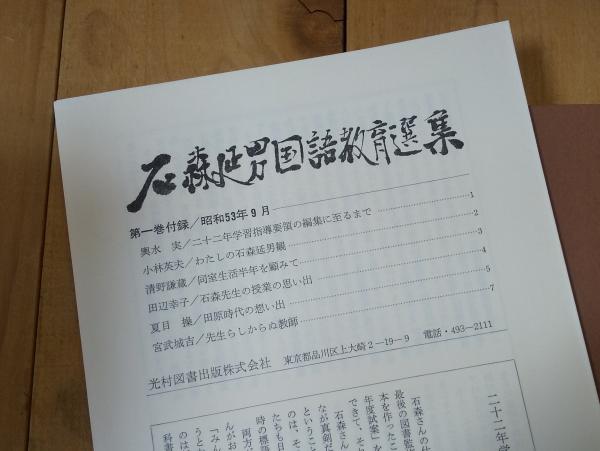 石森延男国語教育選集
第一巻付録/昭和53年9月
輿水 実/二十二年学習指導要領の編集に至るまで 1
小林英夫/わたしの石森延男観 2
清野謙蔵/同室生活半年を顧みて 3
田辺幸子/石森先生の授業の思い出 4
夏目 操/田原時代の想い出 5
宮武城吉/先生らしからぬ教師 7
光村図書出版株式会社 東京都品川区上大崎2-19-9 電話・493-2111
二十二年学
石森さんの仕
最後の図書監
本を作ったこ
年度試案」を
できて、そ
石森さん
なが真剣だ
ということ
のは、そ
たちも日
時の標語
両方
んがお
「みん
うと
のは
科書